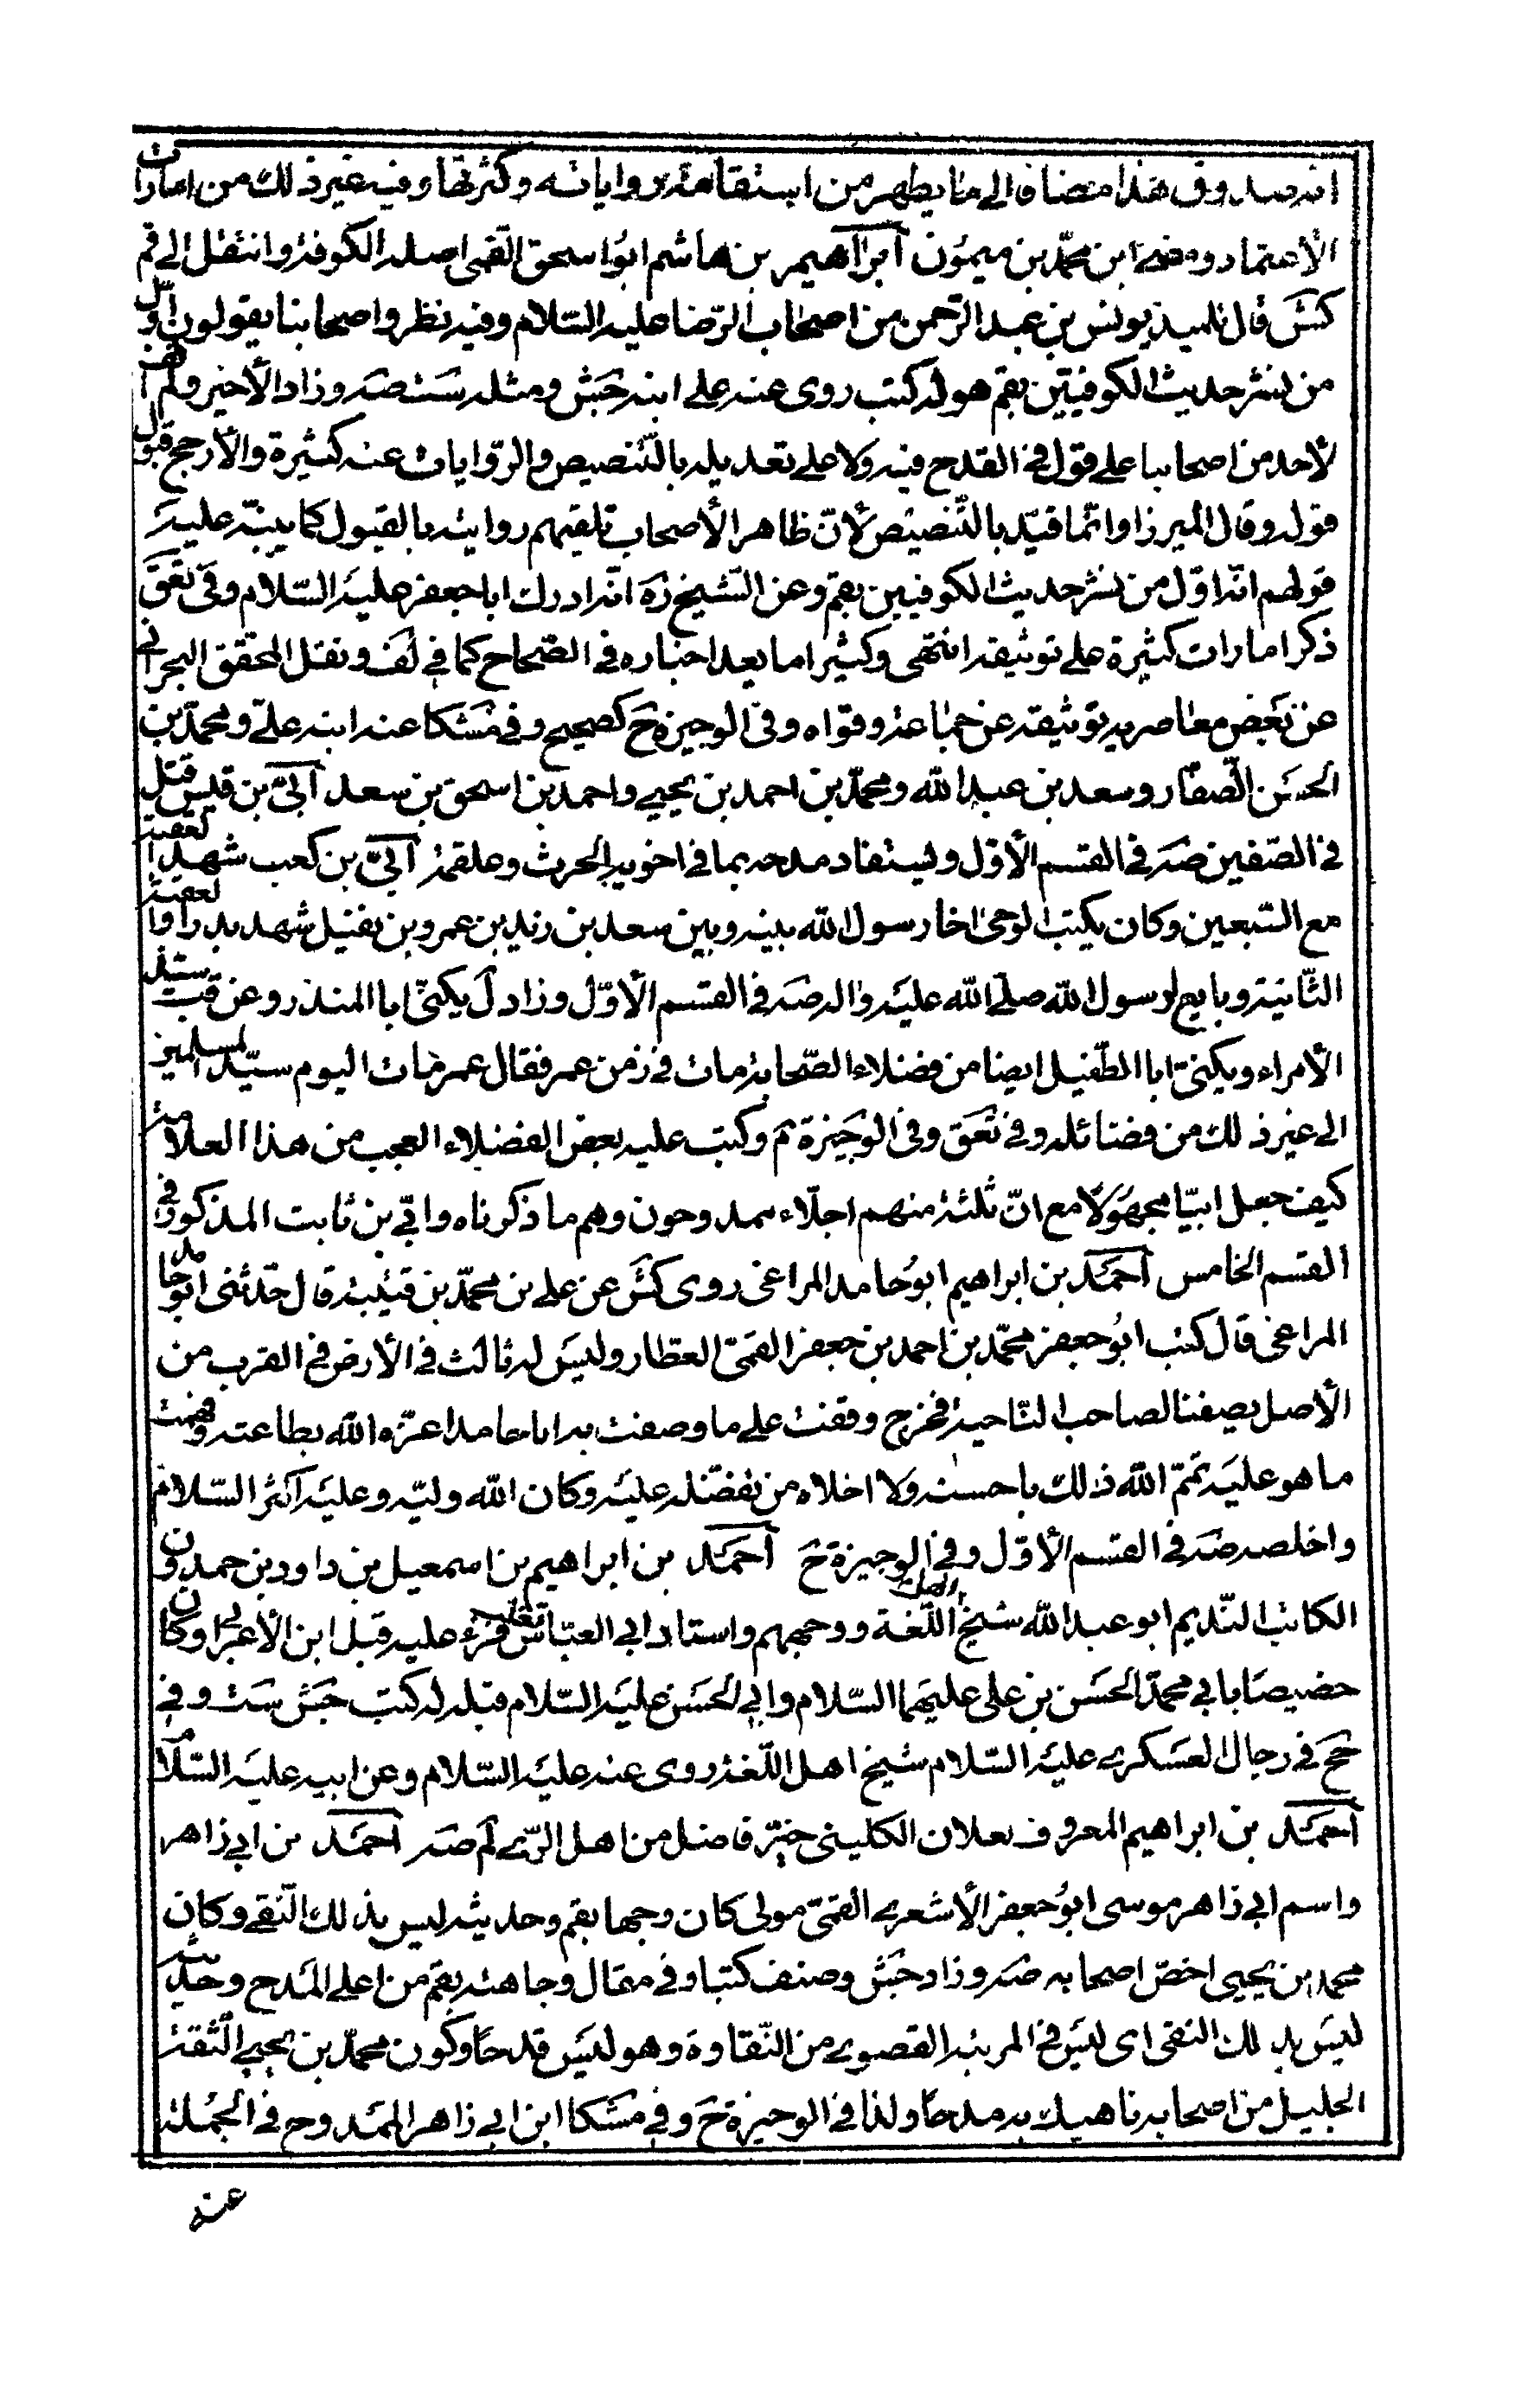 انه صدوق هذا مضافا الى ما يظهر من استقامة رواياته وكثرتها وفيه غير ذلك من امارات
الأعتماد ومضى ابن محمّد بن ميمون ابراهيم بن هاشم ابو اسحق القمى اصله الكوفة وانتقل الى قم
كش قال تلميذ يونس بن عبد الرحمن من اصحاب الرّضا عليه السّلام وفيه نظر واصحابنا يقولون اوّل
من نشر حديث الكوفيّين بقم هو له كتب روى عنه على ابنه جش ومثله ست صه وزاد الأخير ولم اقف
لأحد من اصحابنا على قول فى القدح فيه ولا على تعديله بالتّنصيص والرّوايات عنه كثيرة والأرجح قبول
قوله وقال الميرزا وانّما قيّد بالتّنصيص لأنّ ظاهر الأصحاب تلقيهم روايته بالقبول كما ينبّه عليه
قولهم انّه اوّل من نشر حديث الكوفيين بقم وعن الشّيخ ره انّه ادرك ابا جعفر عليه السّلام وفى تعق
ذكر امارات كثيرة على توثيقه انتهى وكثيرا ما يعد اخباره فى الصّحاح كما فى لف ونقل المحقق البحرانى
عن بعض معاصريه توثيقه عن جماعة وقوّاه وفى الوجيزة ح كصحيح وفى مشكا عنه ابنه علىّ ومحمّد بن
الحسن الصّفّار وسعد بن عبد الله ومحمّد بن احمد بن يحيى واحمد بن اسحق بن سعد ابىّ بن قيس قتل
فى الصّفين صه فى القسم الأوّل ويستفاد مدحه بما فى اخويه الحرث وعلقمة ابىّ بن كعب شهد العقبة
مع السّبعين وكان يكتب الوحى اخا رسول الله بينه وبين سعد بن زيد بن عمرو بن نفيل شهد بدرا والعقبة
الثّانية وبايع لرسول الله صلى الله عليه واله صه فى القسم الأوّل وزاد ل يكنّى ابا المنذر وعن قب سيّد
الأمراء ويكنىّ ابا الطّفيل ايضا من فضلاء الصّحابة مات فى زمن عمر فقال عمر مات اليوم سيّد المسلمين
الى غير ذلك من فضائله وفى تعق وفى الوجيزة م وكتب عليه بعض الفضلاء العجب من هذا العلامة
كيف جعل ابيّا مجهولا مع انّ ثلثة منهم اجلّاء ممدوحون وهم ما ذكرناه وابّى بن ثابت المذكور فى
القسم الخامس احمد بن ابراهيم ابو حامد المراغى روى كش عن على بن محمّد بن قتيبة قال حدّثنى ابو حامد
المراغى قال كتب ابو جعفر محمّد بن احمد بن جعفر القمىّ العطّار وليس له ثالث فى الأرض فى القرب من
الأصل يصفنا لصاحب النّاحية فخرج وقفت على ما وصفت به ابا حامد اعزّه الله بطاعته وفهمت
ما هو عليه تمّم الله ذلك باحسنه ولا اخلاه من تفضّله عليه وكان الله وليّه وعليه اكثر السّلام
واخلصه صه فى القسم الأوّل وفى الوجيزة ح احمد بن ابراهيم بن اسمعيل بن داود بن حمدون
الكاتب النّديم ابو عبد الله شيخ اهل اللّغة ووجههم واستاد ابى العبّاس ثعلب قرء عليه قبل ابن الأعرابى وكان
خصيصا بابى محمّد الحسن بن على عليهما السّلام وابى الحسن عليه السّلام قبله له كتب جش ست وفى
جخ فى رجال العسكرى عليه السّلام شيخ اهل اللّغة روى عنه عليه السّلام وعن ابيه عليه السّلام
احمد بن ابراهيم المعروف بعلان الكلينى خيّر فاضل من اهل الرّى لم صه احمد بن ابى زاهر
واسم ابى زاهر موسى ابو جعفر الأشعرى القمىّ مولى كان وجها بقم وحديثه ليس بذلك النّقى وكان
محمد بن يحيى اخصّ اصحابه صه وزاد جش وصنف كتبا وفى مقال وجاهته بقم من اعلى المدح وحديثه
ليس بذلك النقى اى ليس فى المرتبة القصوى من النّقاوة وهو ليس قدحا وكون محمّد بن يحيى الثّقة
الجليل من اصحابه ناهيك به مدحا ولذا فى الوجيزة ح وفى مشكا ابن ابى زاهر الممدوح فى الجملة
عنه